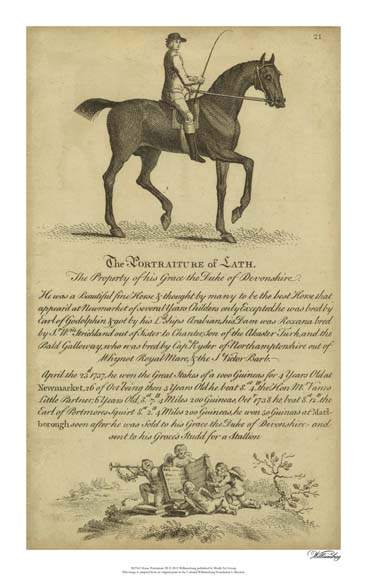 21
The PORTRAITURE of LATH.
The Property of his Grace the Duke of Devonshire.
He was a Beautiful fine Horse & thought by many to be the best Horse that
appear'd at Newmarket of several Years Childers only Excepted, he was bred by
Earl of Godolphin & got by his Lships Arabian, his Dam was Roxana bred
by Sr Wm Strickland out of Sister to Chanter, Son of the Akaster Turk, and the
Bald Galloway, who was bred by Capn Ryder of Northamptonshire out of
Whynot Royal Mare, & the St Victor Barb.
April the 1737, he won the Great Stakes of a 1000 Guineas for 4 Years Old at
Newmarket, 26 of Octr being then 5 Years Old he beat the Hon Mr Vanes
Little Partner, 6 Years Old, 4 Miles 200 Guineas, Octr 1738 he beat the
Earl of Portmores Squirt 4 Miles 200 Guineas, he won 50 Guineas at Marl-
borough soon after he was Sold to his Grace the Duke of Devonshire and
sent to his Graces Studd for a Stallion
Williamsburg